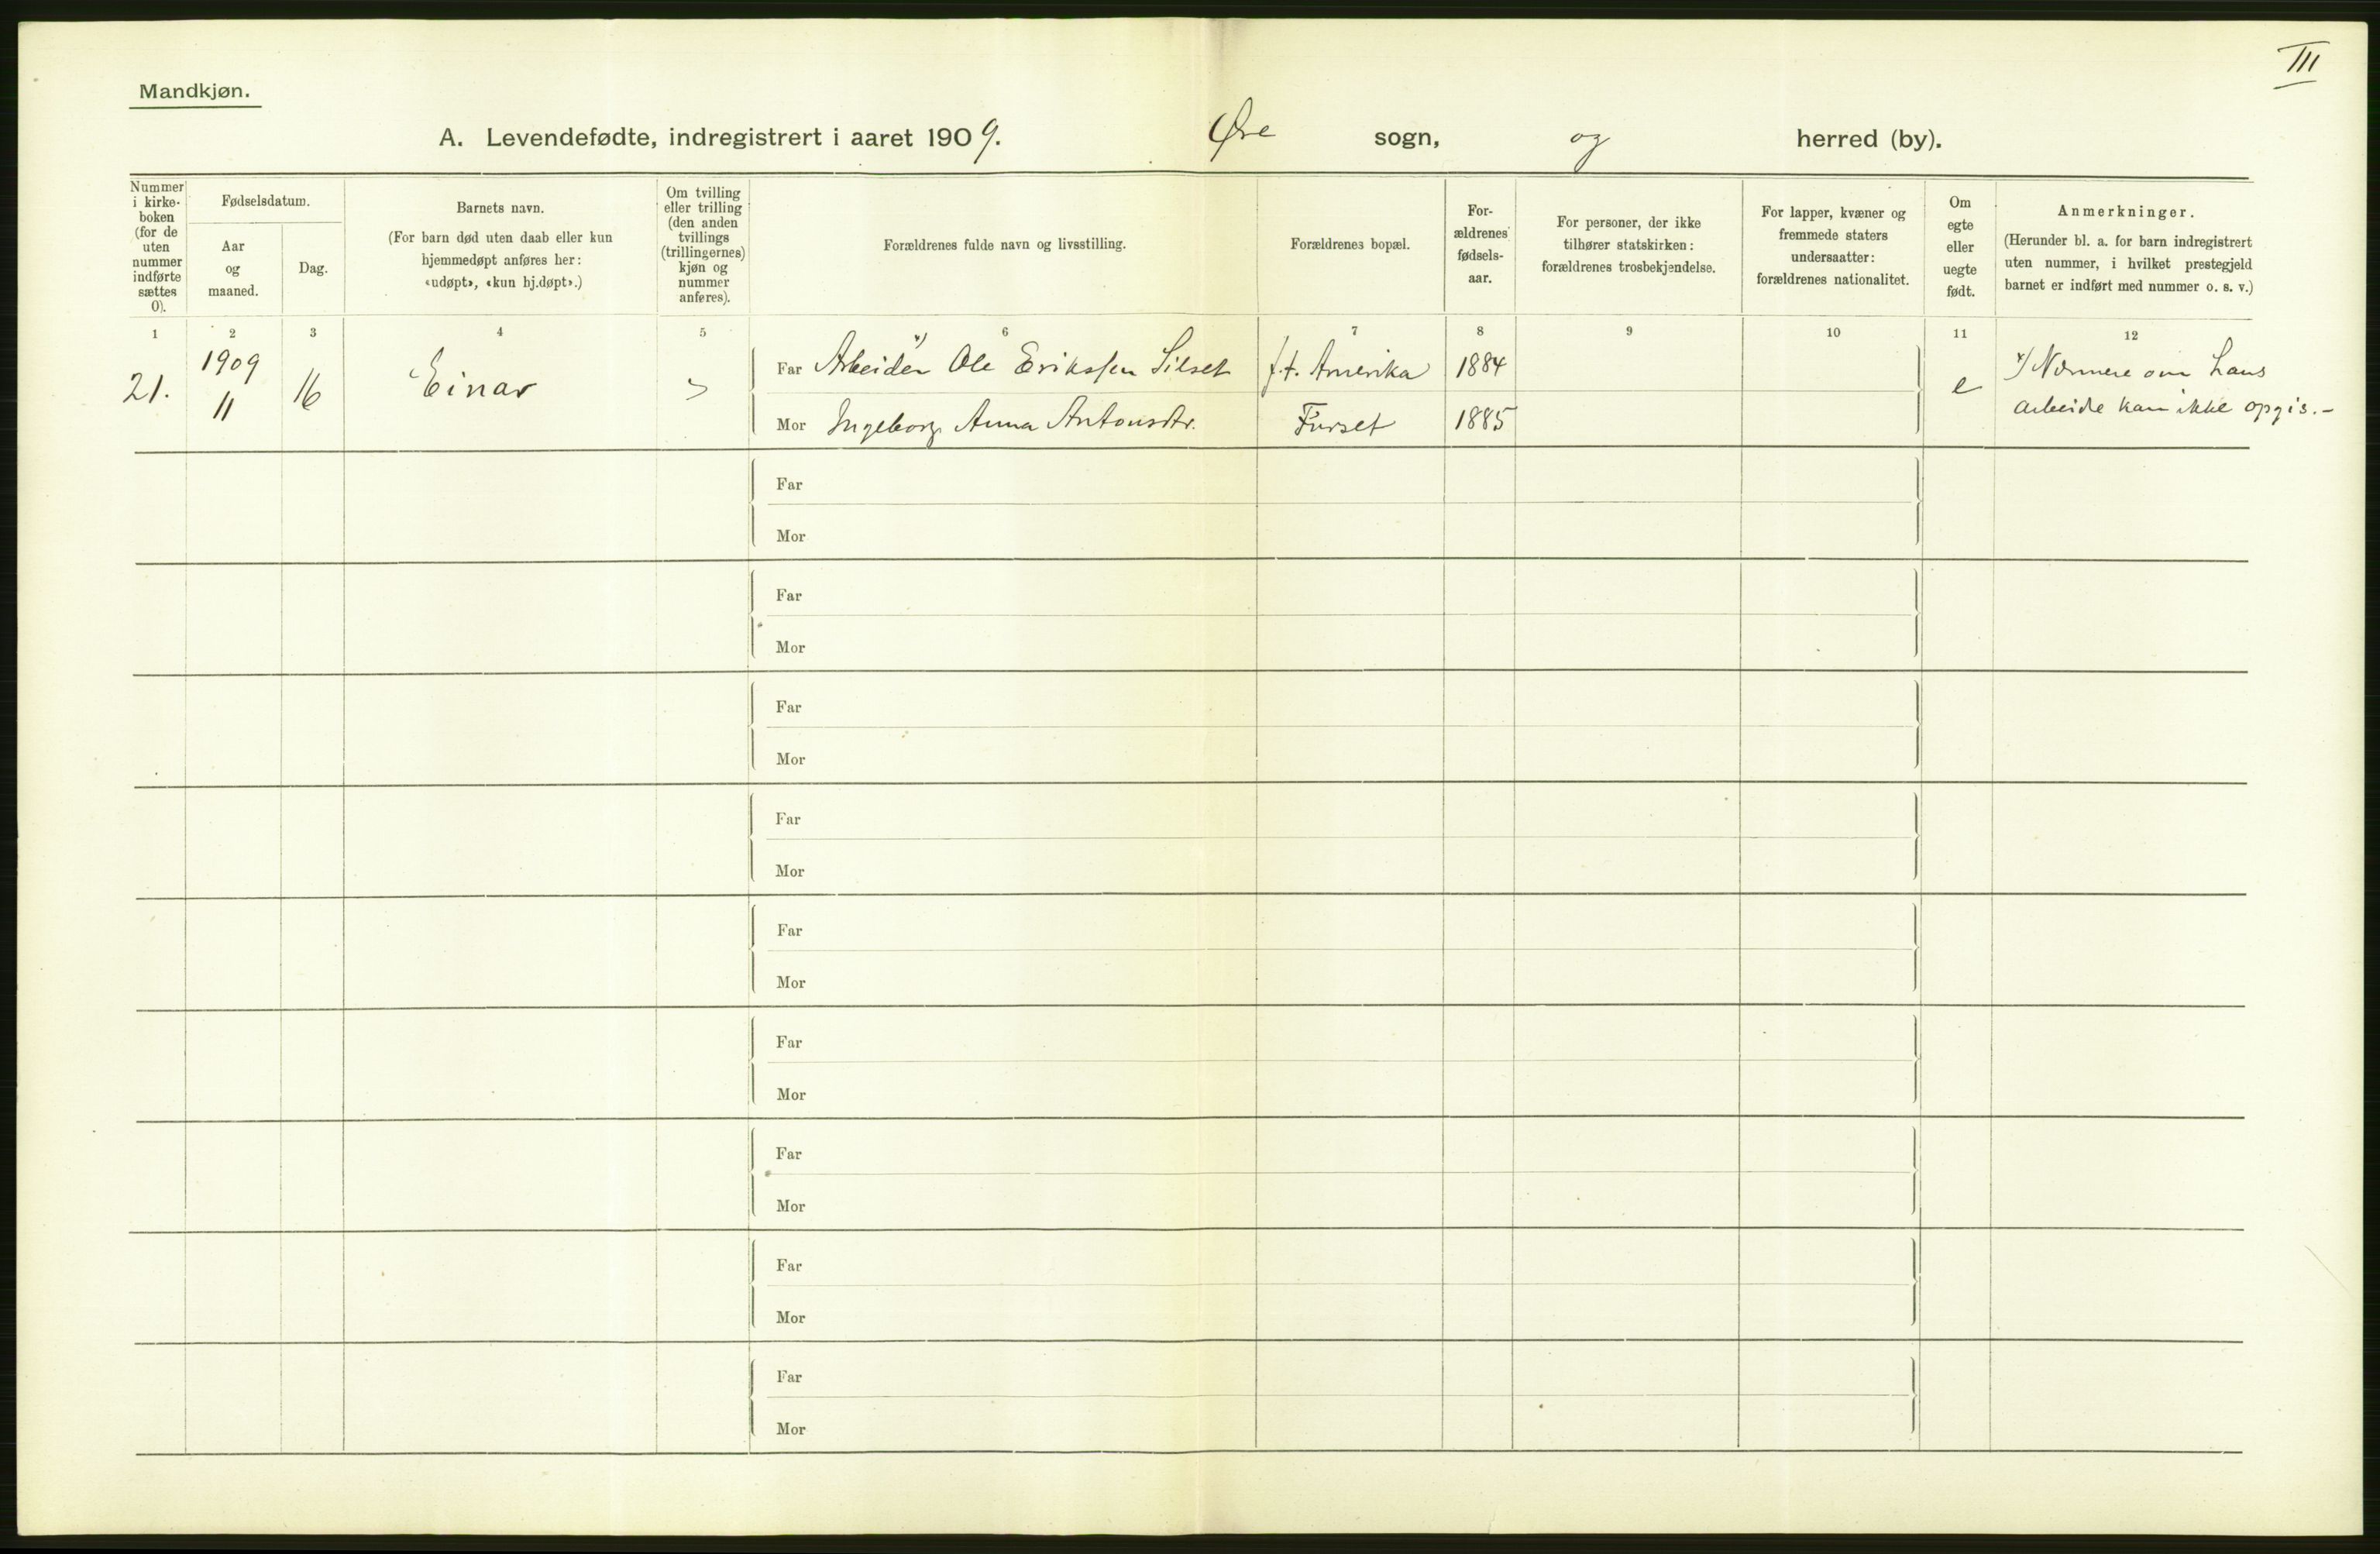 III
Mandkjøn.
A. Levendefødte, indregistrert i aaret 1909. Øre sogn, og herred (by).
Nummer i kirke-boken (for de uten nummer indførte sættes 0).
Fødselsdatum.
Aar og maaned.
Dag.
Barnets navn.
(For barn død uten daab eller kun hjemmedøpt anføres her: «udøpt», «kun hj.døpt».)
Om tvilling eller trilling (den anden tvillings (trillingernes) kjøn og nummer anføres).
Forældrenes fulde navn og livsstilling.
Forældrenes bopæl.
For-ældrenes fødsels-aar.
For personer, der ikke tilhører statskirken: forældrenes trosbekjendelse.
For lapper, kvæner og fremmede staters undersaatter: forældrenes nationalitet.
Om egte eller uegte født.
Anmerkninger.
(Herunder bl. a. for barn indregistrert uten nummer, i hvilket prestegjeld barnet er indført med nummer o. s. v.)
1 2 3 4 5 6 7 8 9 10 11 12
21. 1909 11 16 Einar
Far Arbeider x) Ole Eriksen Silset f.t. Amerika 1884
Mor Ingeborg Anna Antonsdtr. Furset 1885
e
x) Nærmere om hans
arbeide kan ikke opgis.-
Far
Mor
Far
Mor
Far
Mor
Far
Mor
Far
Mor
Far
Mor
Far
Mor
Far
Mor
Far
Mor